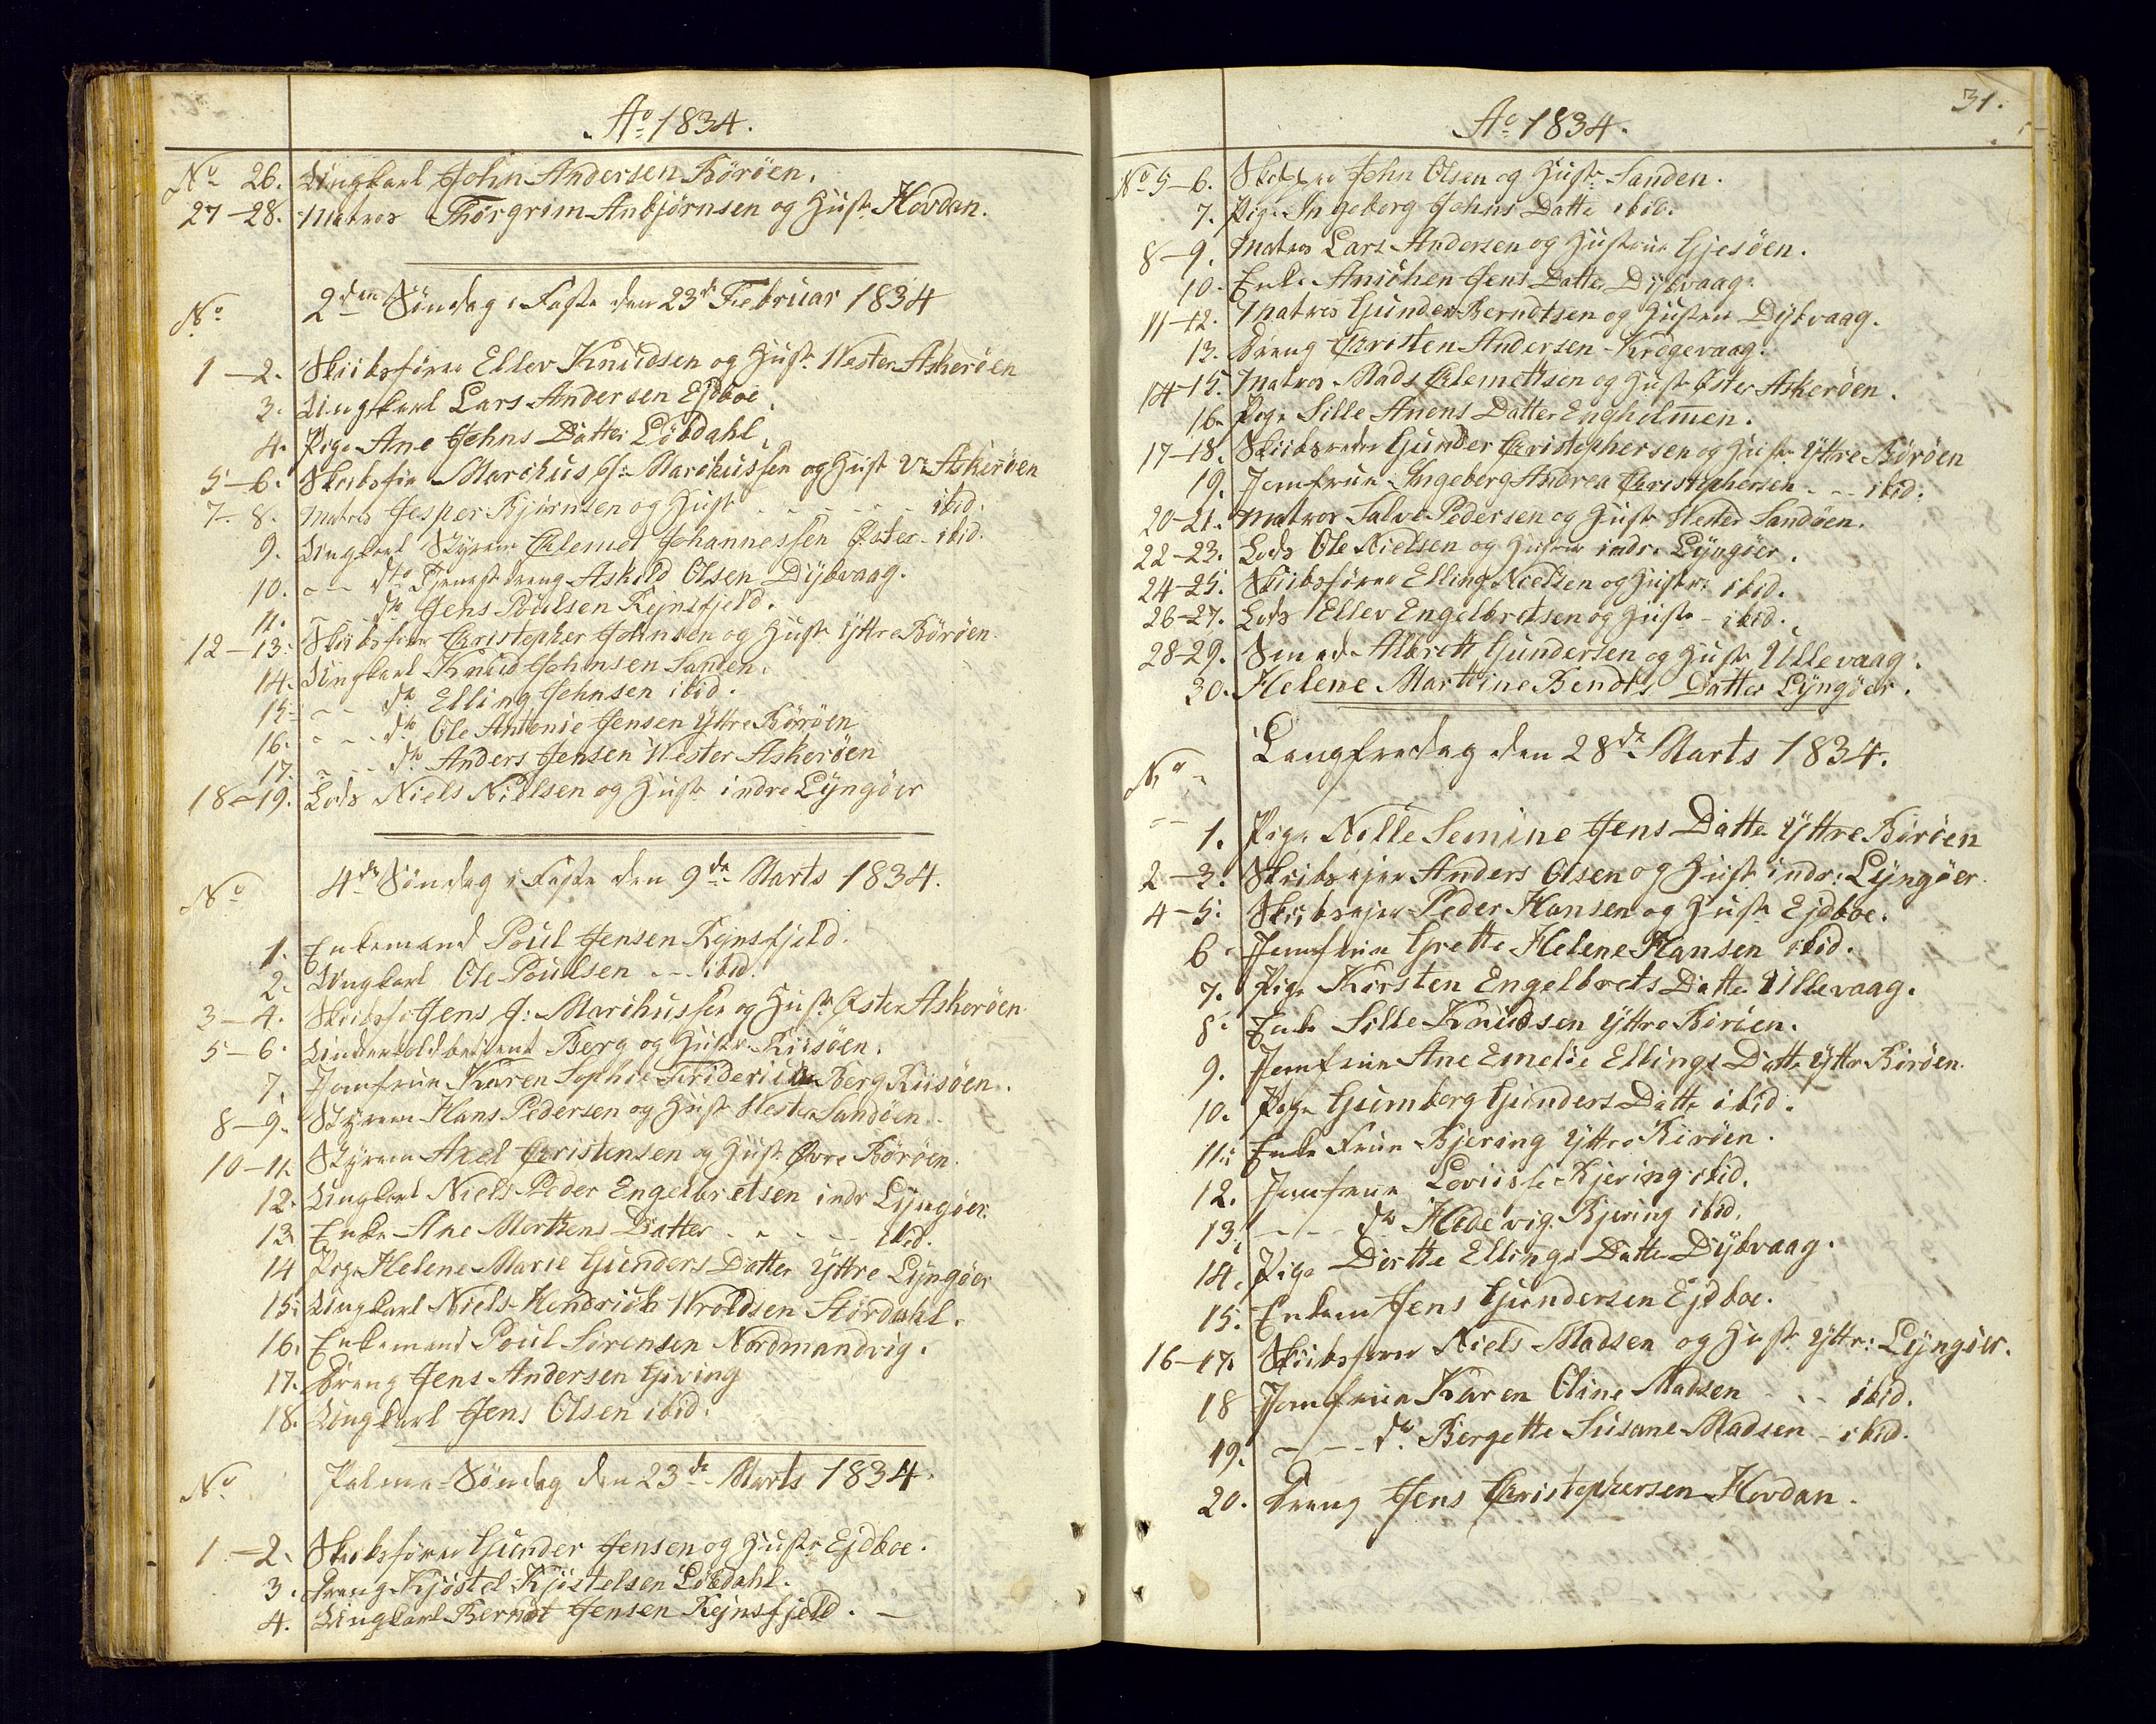 Ao 1834.
No 26. Ungkarl John Andersen Böröen.
27-28. Matros Thorgrim Anbjørnsen og Hustr Hovdan.
No 2den Søndag i Faste den 23de Februar 1834
1-2. Skibsfører Ellev Knudsen og Hustr. Wester Askerøen
3. Ungkarl Lars Andersen Ejdboe
4. Pige Ane Johns Datter Löbdahl.
5-6. Skibsfør Marchus J: Marchussen og Hust V: Askerøen
7-8. Matros Jesper Bjørnsen og Hust - - - - - ibid.
9. Ungkarl Styrm Clemet Johannessen Øster - ibid.
10. - - dto Tjenestdreng Askild Olsen Dybvaag.
11. - - do Jens Poulsen Rejnsfjeld.
12-13. Skibsfører Christopher Johnsen og Hustr Yttre Börøen.
14. Ungkarl Knud Johnsen Sanden.
15. - - do Elling Johnsen ibid.
16. - - do Ole Antonie Jensen Yttre Börøen
17. - - do Anders Jensen Wester Askerøen
18-19. Lods Niels Nielsen og Hustr indre Lyngøer
No 4de Søndag i Faste den 9de Marts 1834.
1. Enkemand Poul Jensen Rejnsfjeld.
2. Ungkarl Ole Poulsen - - ibid.
3-4. Skibsf: Jens J: Marchussen og Hustr Øster Askerøen
5-6. Undertoldbetjent Berg og Hustr Riisöen.
7. Jomfrue Karen Sophie Friderica Berg Riisöen.
8-9. Styrm Hans Pedersen og Hust Wester Sandøen.
10-11. Styrm Axel Christensen og Hust Øvre Börøen.
12. Ungkarl Niels Peder Engelbretsen indr Lyngøer.
13. Enke Ane Morthens Datter - - - - - ibid.
14 Pige Helene Marie Gunders Datter Yttre Lyngøer
15. Ungkarl Niels Hendrich Wroldsen Stördahl.
16. Enkemand Poul Sörensen Nordmandvig.
17. Dreng Jens Andersen Gjeving
18. Ungkarl Jens Olsen ibid.
No Palme-Søndag den 23de Marts 1834.
1-2. Skibsfører Gunder Jensen og Hustr Ejdboe.
3. Dreng Kjöstel Kjöstelsen Löbdahl.
4. Ungkarl Berndt Jensen Rejnsfjeld. -
31.
Ao 1834.
No 5-6. John Olsen og Hustr Sanden.
7. Pige Ingeborg Johns Datte ibid.
8-9. Matros Lars Andersen og Hustrue Gjesöen.
10. Enke Anichen Jens Datter Dybvaag.
11-12. Matros Gunder Berndtsen og Hustru Dybvaag.
13. Dreng Christen Andersen Krogevaag.
14-15. Matros Mads Clemetsen og Hustr Øster Askerøen.
16. Pige Sille Anens Datter Engholmen.
17-18. Skibsreder Gunder Christophersen og Hustr Yttre Börøen
19. Jomfrue Ingeborg Andrea Christophersen - - ibid.
20-21. Matros Salve Pedersen og Hustr Wester Sandøen.
22-23. Lods Ole Nielsen og Hustrue indr. Lyngøer.
24-25. Skibsfører Elling Nielsen og Hustru ibid.
26-27. Lods Ellev Engelbretsen og Hustr - ibid.
28-29. Smed Albrett Gundersen og Hustr Ullevaag.
30. Helene Marthine Bendts Datter Lyngøer.
No Langfredag den 28de Marts 1834.
1. Pige Nille Semine Jens Datte Yttre Börøen
2-3. Skibsejer Anders Olsen og Hustr indr: Lyngøer.
4-5. Skibsejer Peder Hansen og Hustr Ejdboe.
6 Jomfrue Grette Helene Hansen ibid.
7. Pige Kirsten Engelbrets Datte Ullevaag.
8. Enke Sille Knudsen Yttre Börøen.
9. Jomfrue Ane Emelie Ellings Datte Yttr Börøen.
10. Pige Gumborg Gunders Datte ibid.
11. Enke Frue Bjering Yttre Börøen.
12. Jomfrue Lovisse Bjering ibid.
13. - - do Hedevig Bjering ibid.
14. Pige Dorthe Ellings Datte Dybvaag.
15. Enkem Jens Gundersen Ejdboe.
16-17. Skibsfører Niels Madsen og Hustr Yttr: Lyngøer.
18 Jomfrue Karen Oline Madsen - - ibid.
19. - - do Bergette Susane Madsen - ibid.
20. Dreng Jens Christophersen Hovdan.